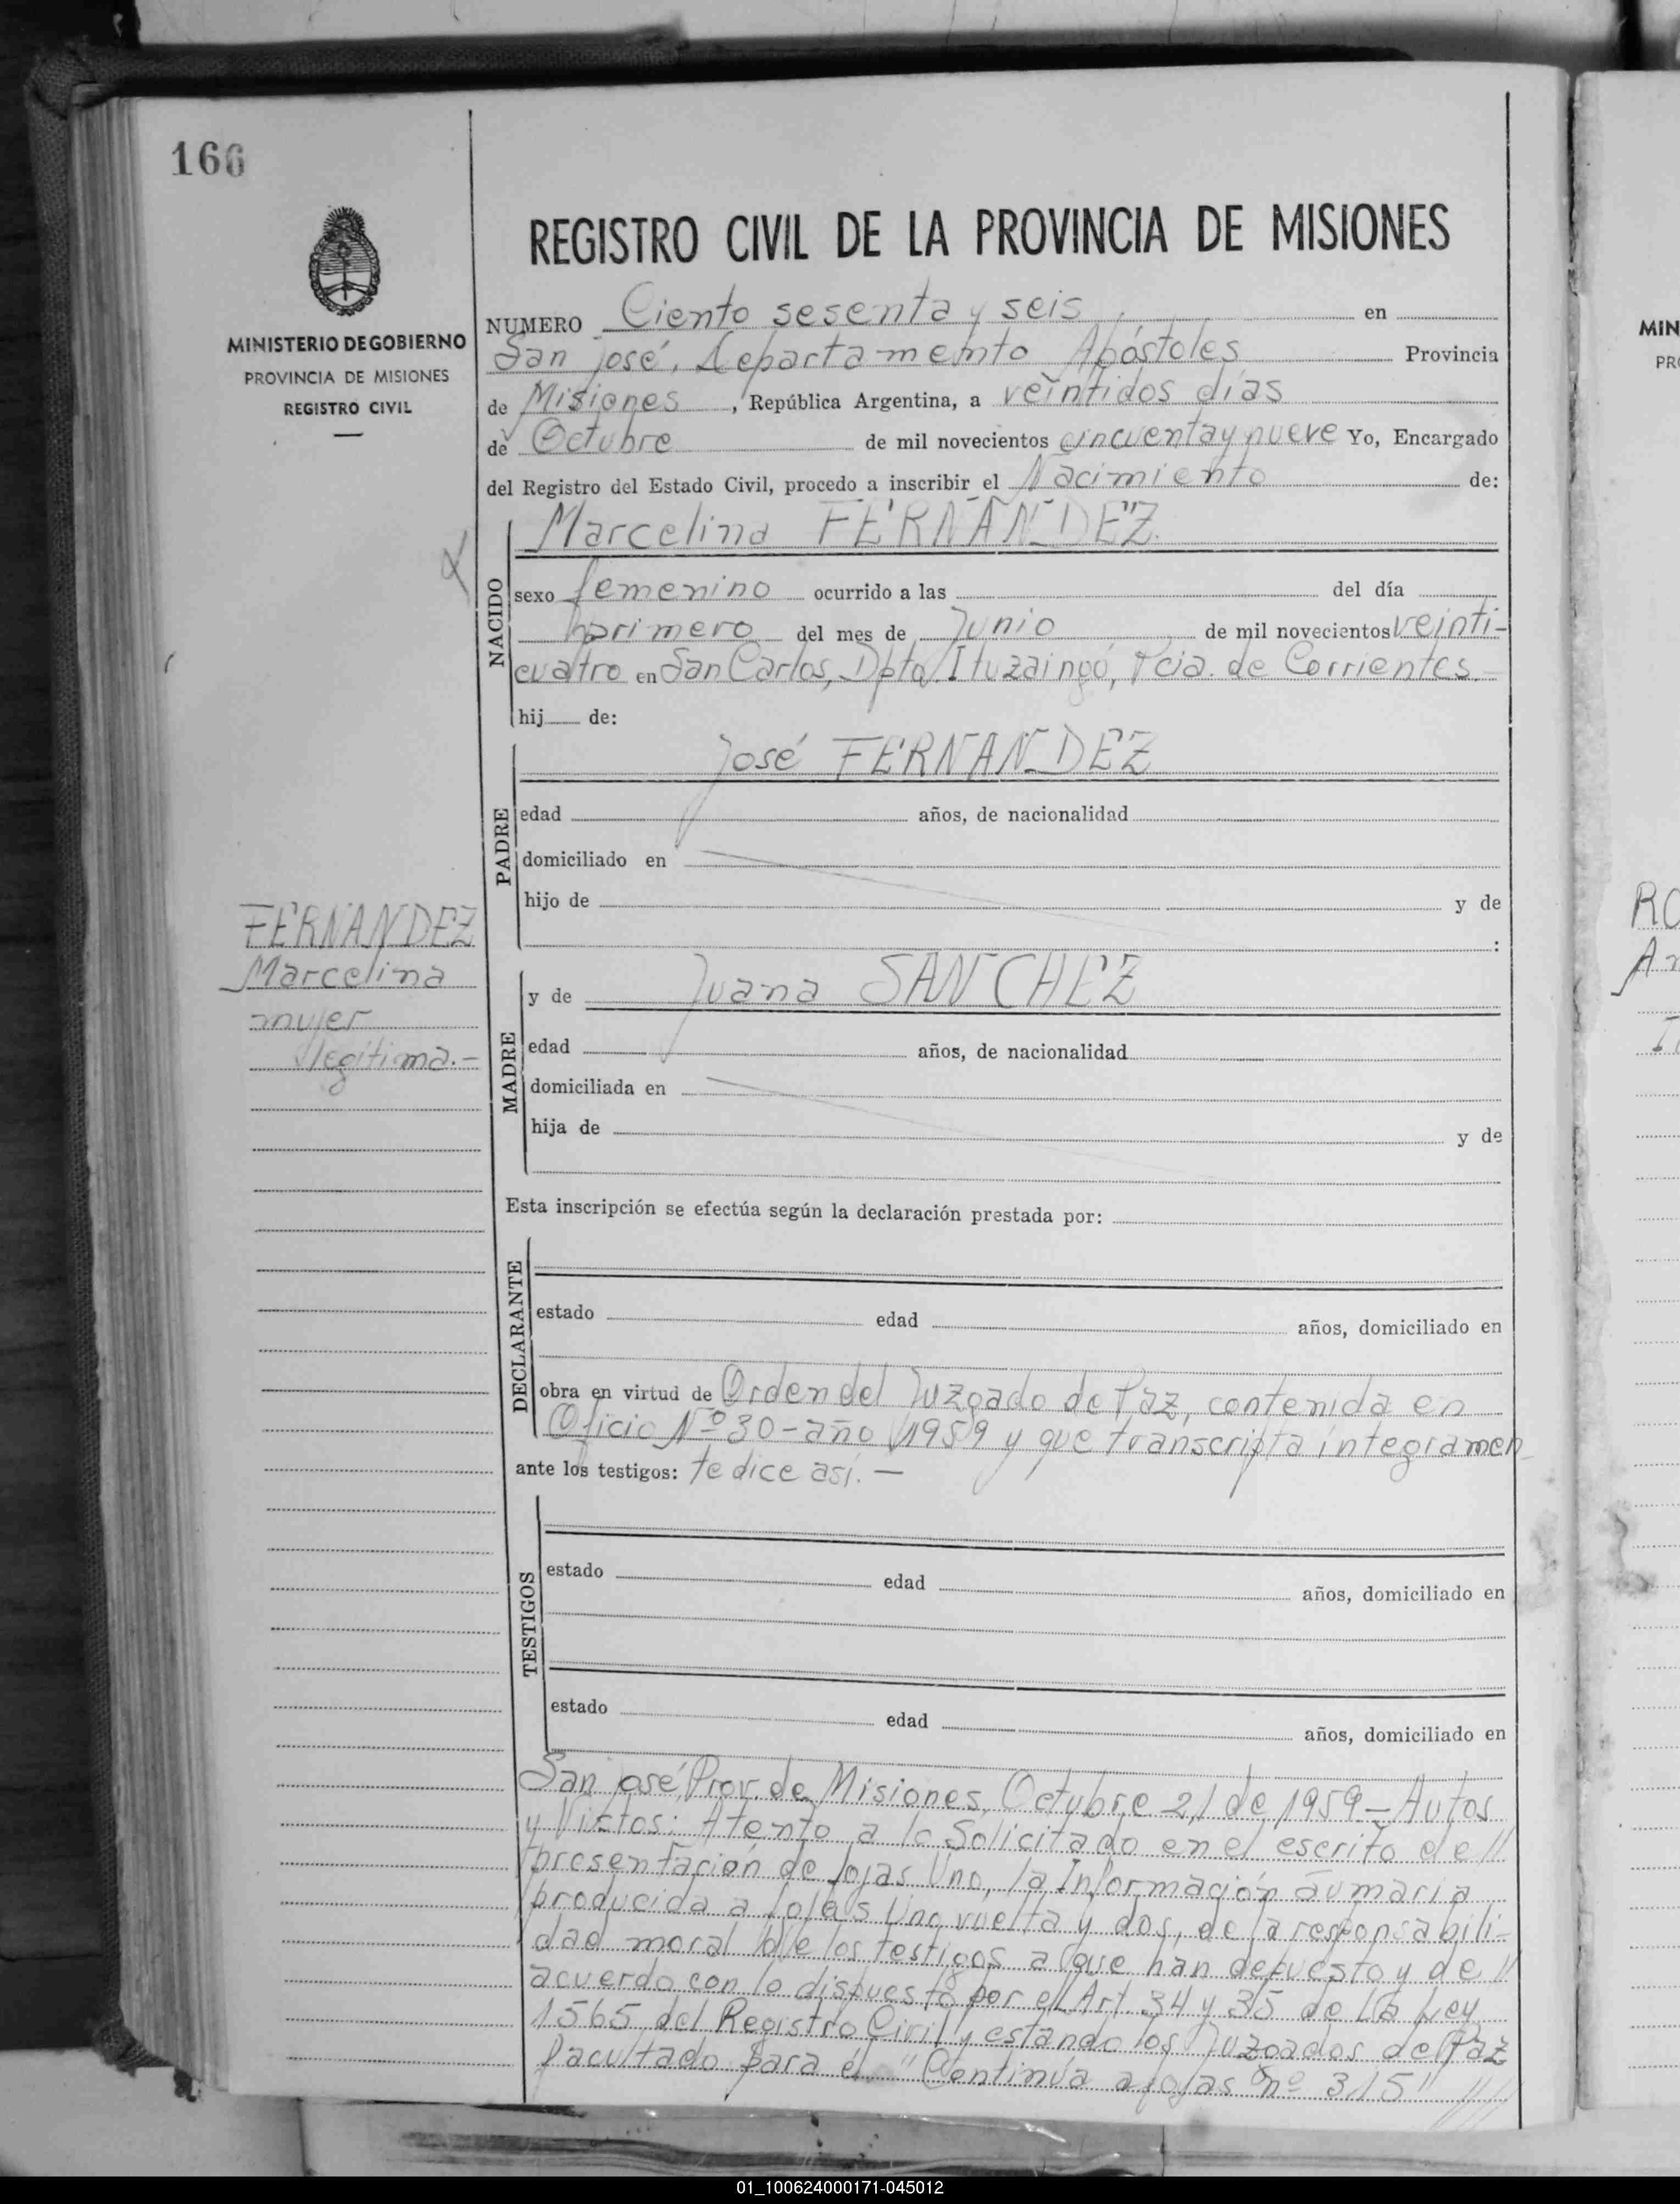 166
MINISTERIO DE GOBIERNO
PROVINCIA DE MISIONES
REGISTRO CIVIL
REGISTRO CIVIL DE LA PROVINCIA DE MISIONES
NUMERO Ciento sesenta y seis en
San José, Departamento Apóstoles Provincia
de Misiones, República Argentina, a veintidos días
de Octubre de mil novecientos cincuenta y nueve Yo, Encargado
del Registro del Estado Civil, procedo a inscribir el Nacimiento de:
NACIDO
Marcelina FERNÁNDEZ.
sexo femenino ocurrido a las del día
primero del mes de Junio de mil novecientos veinti-
cuatro en San Carlos, Dpto. Ituzaingó, Pcia. de Corrientes.
hij de:
PADRE
José FERNANDEZ
edad años, de nacionalidad
domiciliado en
hijo de y de
:
FERNANDEZ
Marcelina
mujer
legítima.-
MADRE
y de Juana SANCHEZ
edad años, de nacionalidad
domiciliada en
hija de y de
Esta inscripción se efectúa según la declaración prestada por:
DECLARANTE
estado edad años, domiciliado en
obra en virtud de Orden del Juzgado de Paz, contenida en
Oficio Nº 30-año 1959 y que transcripta integramen
ante los testigos: te dice asi.-
TESTIGOS
estado edad años, domiciliado en
estado edad años, domiciliado en
San José, Prov. de Misiones, Octubre 21 de 1959.- Autos
y Vistos: Atento a lo Solicitado en el escrito de //
presentación de fojas Uno, la Información sumaria
producida a fojas Uno vuelta y dos, de la responsabili-
dad moral de los testigos a que han depuesto y de //
acuerdo con lo dispuesto por el Art. 34 y 35 de la Ley
1565 del Registro Civil y estando los Juzgados de Paz
facultado para el "Continúa a fojas nº 315" ////
MIN
PR
RO
A
I
01_100624000171-045012